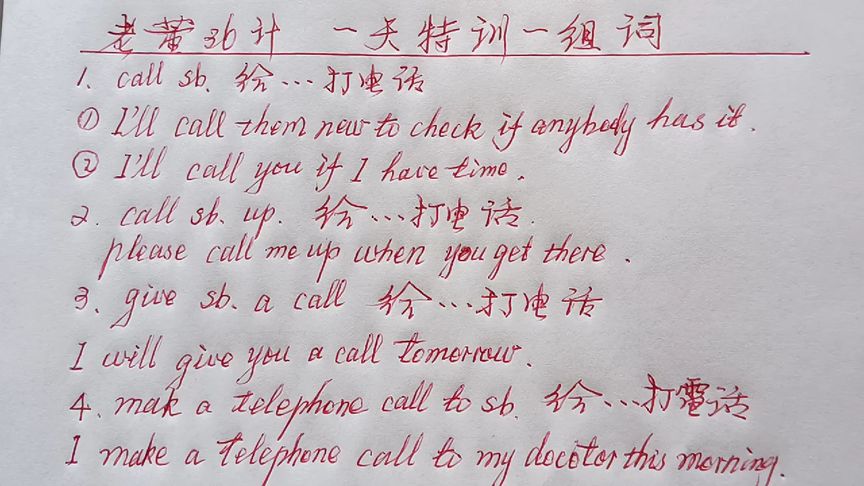 老黄36计 一天特训一组词
1. call sb. 给…打电话
① I'll call them now to check if anybody has it.
② I'll call you if I have time.
2. call sb. up. 给…打电话.
please call me up when you get there.
3. give sb. a call 给…打电话
I will give you a call tomorrow.
4. mak a telephone call to sb. 给…打電话
I make a telephone call to my docotor this morning.